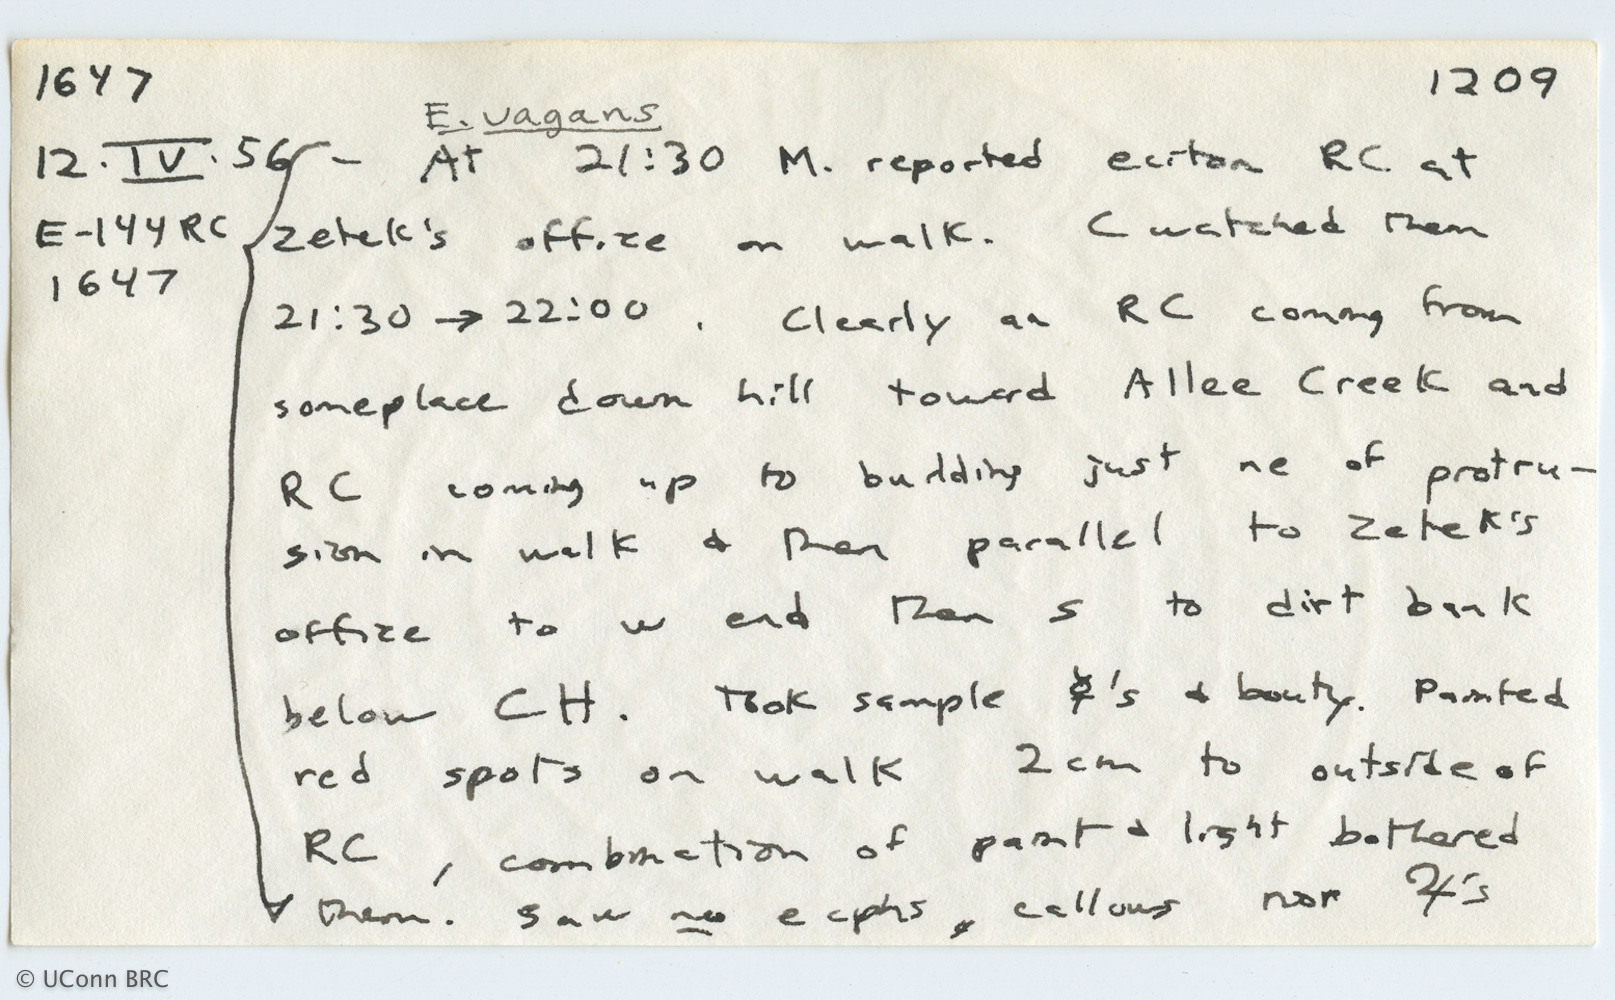 1647 1209
E. vagans
12.IV.56 - At 21:30 M. reported eciton RC at
E-144 RC Zetek's office on walk. C watched them
1647
21:30 → 22:00. Clearly an RC coming from
someplace down hill toward Allee Creek and
RC coming up to building just ne of protru-
sion in walk & then parallel to Zetek's
office to w end then s to dirt bank
below CH. Took sample ☿'s & booty. Painted
red spots on walk 2cm to outside of
RC, combination of paint & light bothered
them. Saw no ecphs, callows nor ♃'s
© UConn BRC